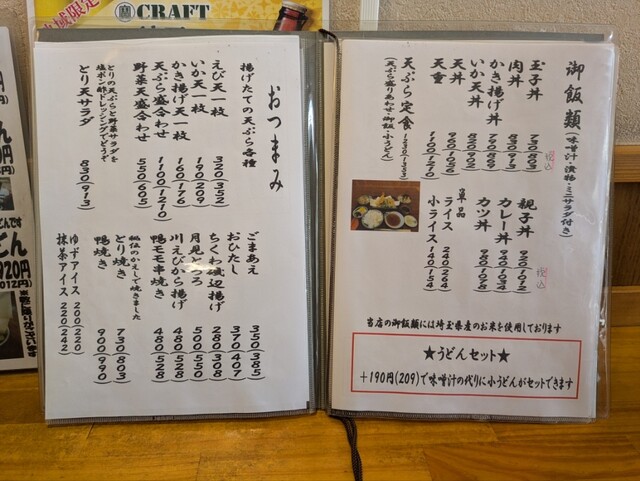 御飯類(味噌汁・漬物・ミニサラダ付き)
玉子丼 730(803)
税込
肉丼 830(913)
かき揚げ丼 790(869)
いか天丼 820(902)
天丼
天重
天ぷら定食 1230(1353)
(天ぷら盛りあわせ・御飯・小うどん)
親子丼 920(1012)
税込
カレー丼
カツ丼 980(1078)
単品
ライス 240(264)
小ライス 140(154)
当店の御飯類には埼玉県産のお米を使用しております
★うどんセット★
+190円(209)で味噌汁の代りに小うどんがセットできます
おつまみ
揚げたての天ぷら各種
えび天一枚 320(352)
いか天一枚 190(209)
かき揚げ天一枚 160(176)
天ぷら盛合わせ 1100(1210)
野菜天盛合わせ 550(605)
とりの天ぷらと野菜サラダを
塩ポン酢ドレッシングでどうぞ
とり天サラダ 830(913)
ごまあえ 350(385)
おひたし 370(407)
ちくわ磯辺揚げ 280(308)
月見とろろ 500(550)
川えびから揚げ 480(528)
鴨モモ串焼き 480(528)
秘伝のかえしで焼きました
とり焼き 730(803)
鴨焼き 900(990)
ゆずアイス 200(220)
抹茶アイス 220(242)
CRAFT
地域限定
920円